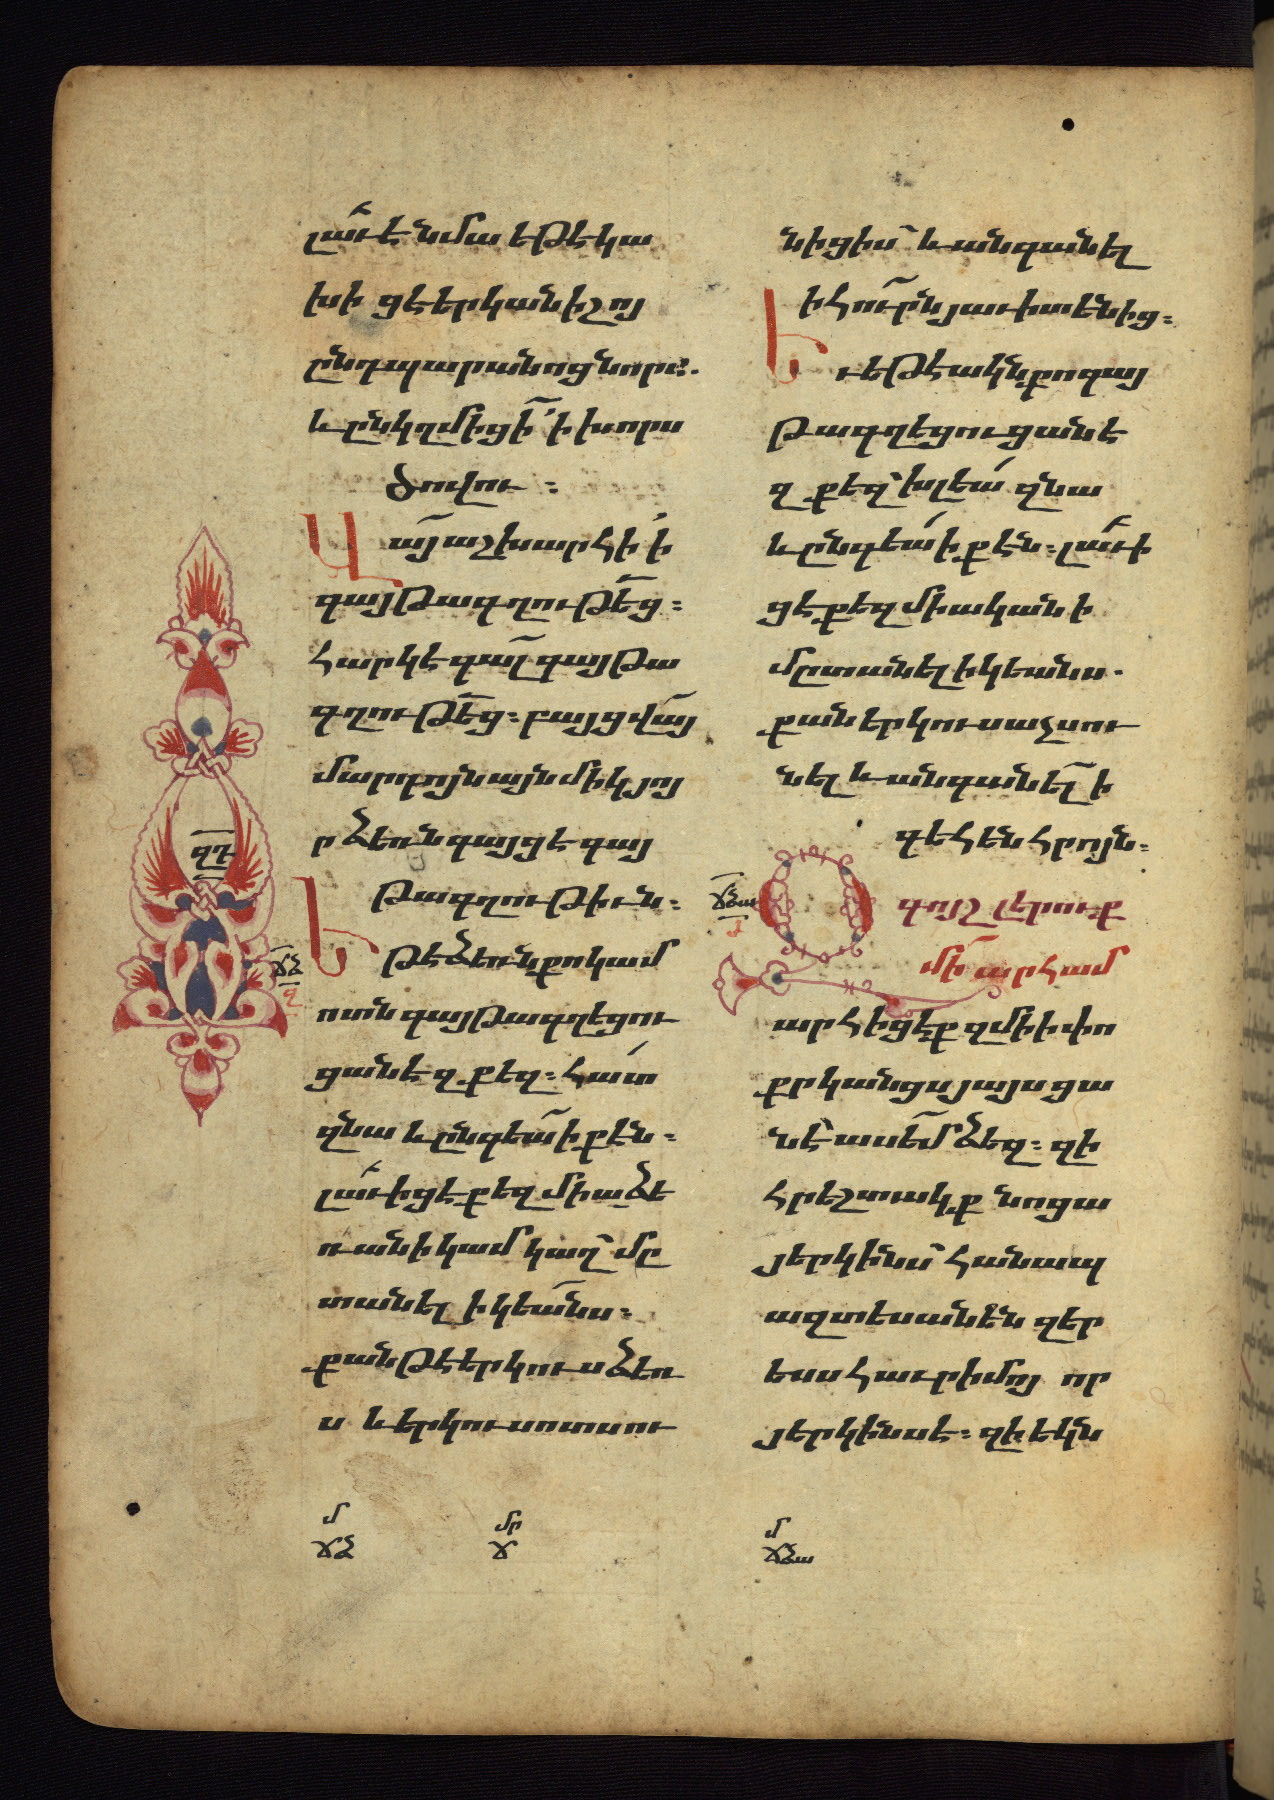 լաւ է նմա եթէ կա
խի ցէ երկան իշոյ
ընդ պարանոց նորա.
և ընկղմիցի ՛ի խորս
ծովու ։
Վա՜յ աշխարհի ՛ի
գայթագղութեց ։
հարկ է գալ գայթա
գղութեց ։ բայց վայ
մարդոյն այնմիկ յոյ
ր ձեռն գայցե գայ
թագղութիւն ։
Եթէ ձեռն քո կամ
ոտն գայթագղեցու
ցանե զքեզ ։ հատ
զնա և ընգեա ի քէն ։
լաւ իցէ քեզ միաձե
ռանի կամ կաղ մը
տանել ի կեանս ։
քան թէ երկուս ձեռ
ս և երկուս ոտս ու
նիցիս և անգանել
ի հուրն յաւիտենից ։
Եւ եթէ ակն քո գայ
թագղեցուցանե
զ քեզ խլեա զնա
և ընգեա ի քէն ։ լաւ ի
ցէ քեզ միականի
մըտանել ի կեանս .
քան երկուս աչս ու
նել և անգանել ի
գեհեն հրոյն ։
Զգոյշ լերուք
մի արհամ
արհիցէք զմի ի փո
քրկանցս յայսցա
նէ ասեմ ձեզ ։ զի
հրեշտակք նոցա
յերկինս հանապ
ազ տեսանեն զեր
եսս հաւր իմոյ որ
յերկինս է ։ զի եկն
զդ
ճձ
զ
ճձա
մ
ճձ
մր
ճ
մ
ճձա